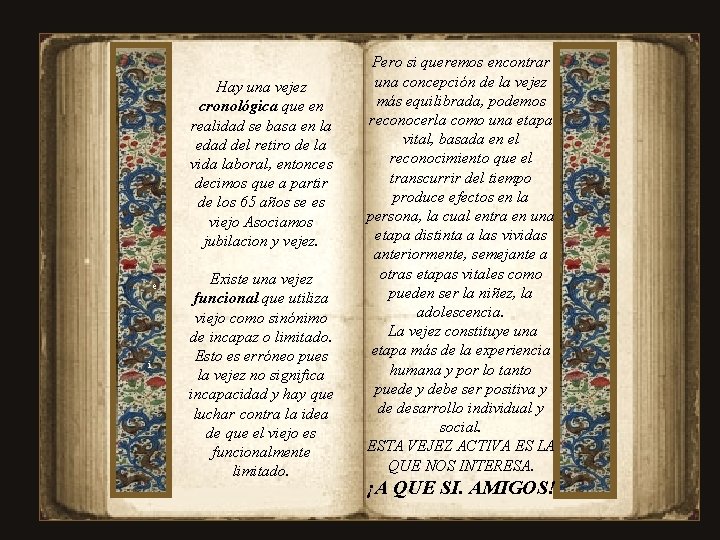 Hay una vejez
cronológica que en
realidad se basa en la
edad del retiro de la
vida laboral, entonces
decimos que a partir
de los 65 años se es
viejo Asociamos
jubilacion y vejez.
Existe una vejez
funcional que utiliza
viejo como sinónimo
de incapaz o limitado.
Esto es erróneo pues
la vejez no significa
incapacidad y hay que
luchar contra la idea
de que el viejo es
funcionalmente
limitado.
Pero si queremos encontrar
una concepción de la vejez
más equilibrada, podemos
reconocerla como una etapa
vital, basada en el
reconocimiento que el
transcurrir del tiempo
produce efectos en la
persona, la cual entra en una
etapa distinta a las vividas
anteriormente, semejante a
otras etapas vitales como
pueden ser la niñez, la
adolescencia.
La vejez constituye una
etapa más de la experiencia
humana y por lo tanto
puede y debe ser positiva y
de desarrollo individual y
social.
ESTA VEJEZ ACTIVA ES LA
QUE NOS INTERESA.
¡A QUE SI. AMIGOS!